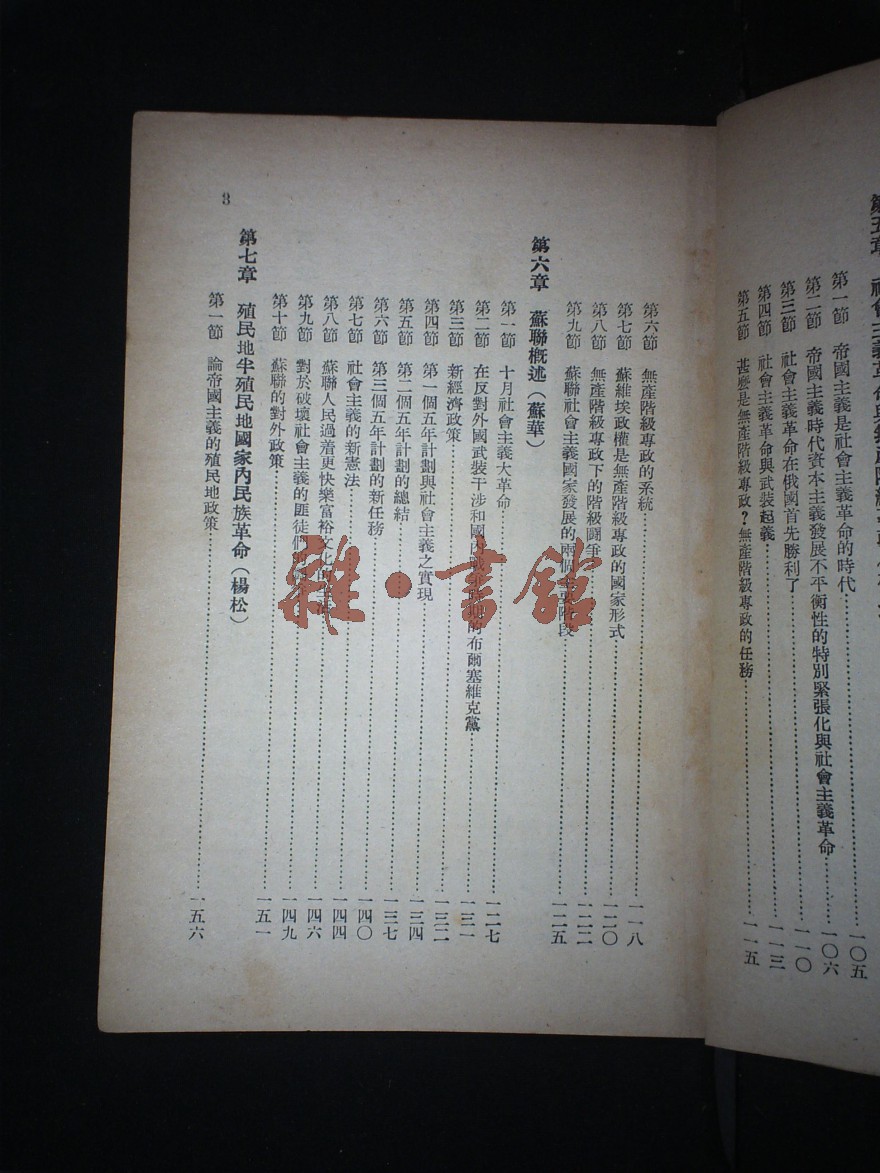 第五章 社會主義革命與無產階級專政
第一節 帝國主義是社會主義革命的時代……一〇五
第二節 帝國主義時代資本主義發展不平衡性的特別緊張化與社會主義革命……一〇六
第三節 社會主義革命在俄國首先勝利了……一一〇
第四節 社會主義革命與武裝起義……一一三
第五節 甚麼是無產階級專政？無產階級專政的任務……一一五
第六節 無產階級專政的系統……一一八
第七節 蘇維埃政權是無產階級專政的國家形式……一二〇
第八節 無產階級專政下的階級鬪爭……一二二
第九節 蘇聯社會主義國家發展的兩個主要階段……一二五
第六章 蘇聯概述（蘇華）
第一節 十月社會主義大革命……一二七
第二節 在反對外國武裝干涉和國內戰爭時期的布爾塞維克黨……一三一
第三節 新經濟政策……一三二
第四節 第一個五年計劃與社會主義之實現……一三四
第五節 第二個五年計劃的總結……一三七
第六節 第三個五年計劃的新任務……一四〇
第七節 社會主義的新憲法……一四四
第八節 蘇聯人民過着更快樂富裕文化的生活……一四六
第九節 對於破壞社會主義的匪徒們……一四九
第十節 蘇聯的對外政策……一五一
第七章 殖民地半殖民地國家內民族革命（楊松）
第一節 論帝國主義的殖民地政策……一五六
3
雜·書館